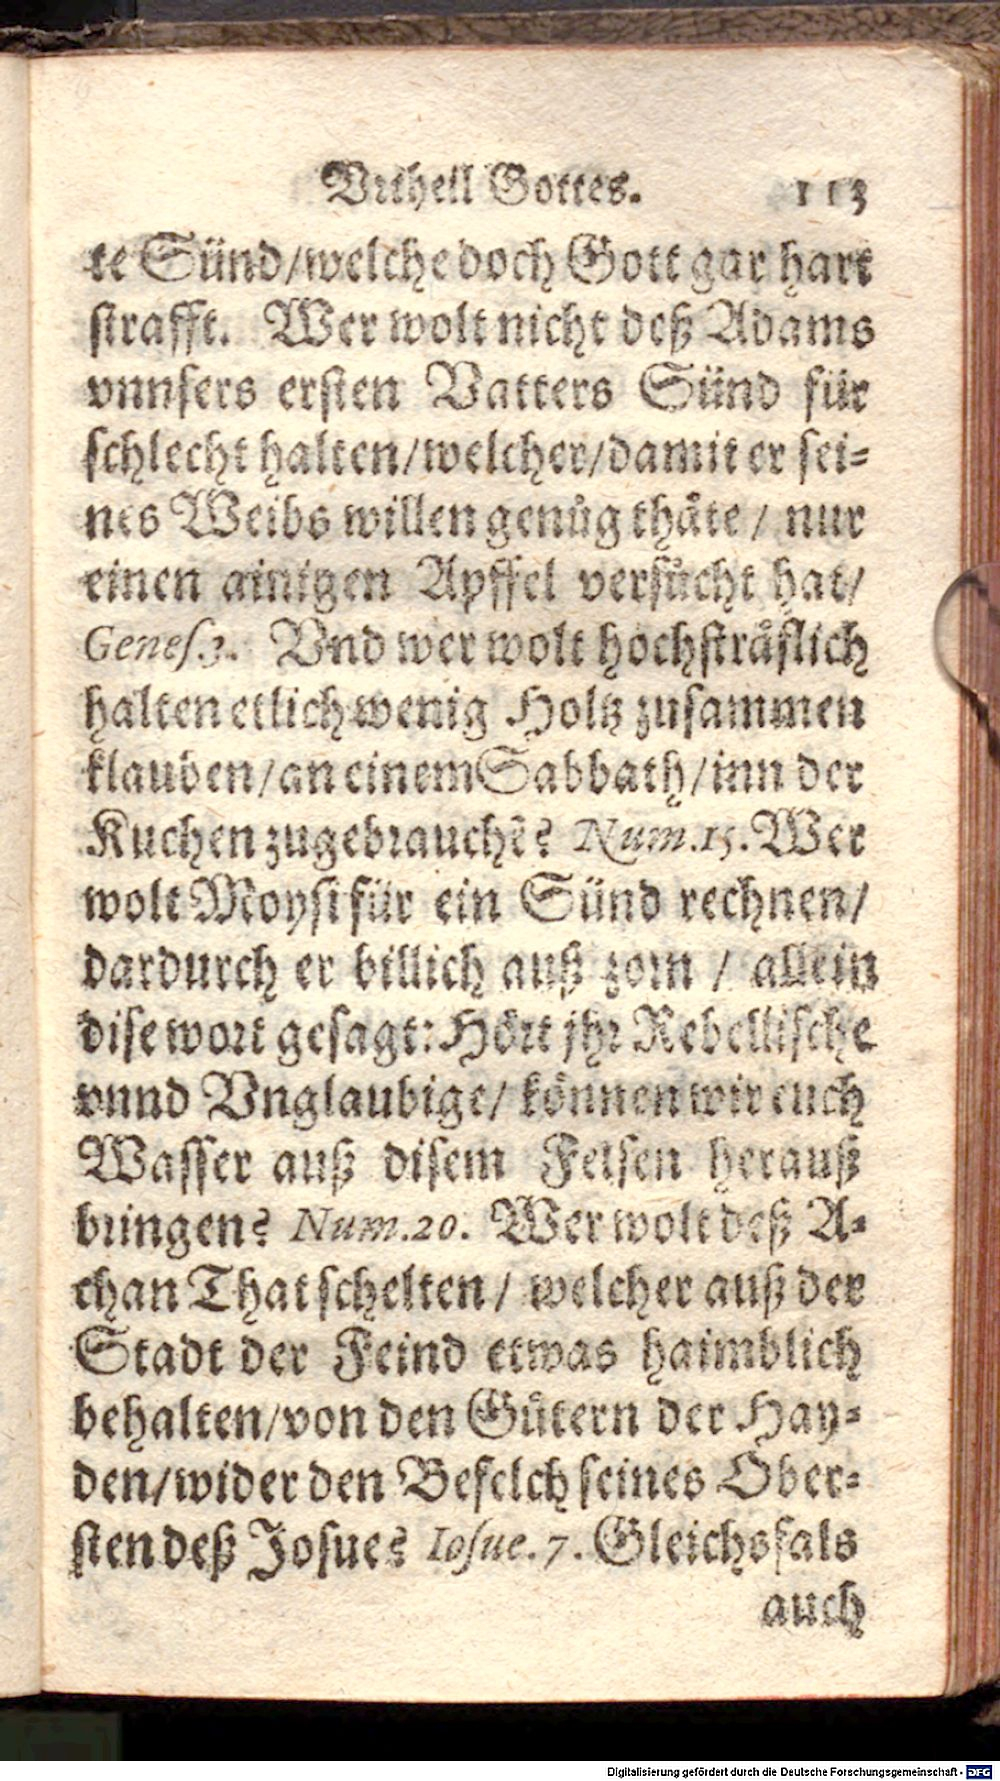 Vrtheil Gottes. 113
te Sünd/welche doch Gott gar hart
strafft. Wer wolt nicht deß Adams
vnnsers ersten Vatters Sünd für
schlecht halten/welcher/damit er sei-
nes Weibs willen genůg thåte / nur
einen ainigen Apffel versůcht hat/
Genes.3. Vnd wer wolt hochstråflich
halten etlich wenig Holtz zusammen
klauben/an einem Sabbath/inn der
Kuchen zugebrauchẽ? Num.15. Wer
wolt Moysi für ein Sünd rechnen/
dardurch er billich auß zorn / allein
dise wort gesagt: Hört jhr Rebellische
vnnd Vnglaubige/ können wir euch
Wasser auß disem Felsen herauß
bringen? Num.20. Wer wolt deß A-
chan That schelten / welcher auß der
Stadt der Feind etwas haimblich
behalten/von den Gůtern der Hay-
den/wider den Befelch seines Ober-
sten deß Josue? Iosue. 7. Gleichsfals
auch
Digitalisierung gefördert durch die Deutsche Forschungsgemeinschaft - DFG